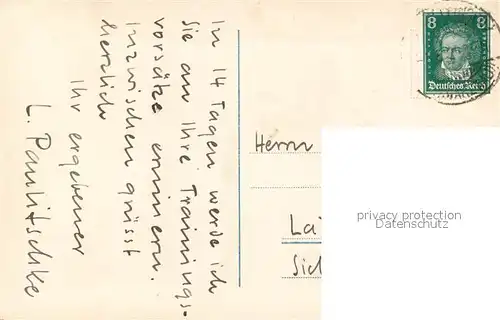 In 14 Tagen werde ich
Sie an Ihre Trainings-
vorsätze erinnern.
Inzwischen grüsst
herzlich
Ihr ergebener
L. Paulitschke
8 8
Deutsches Reich
Herrn
privacy protection
Datenschutz